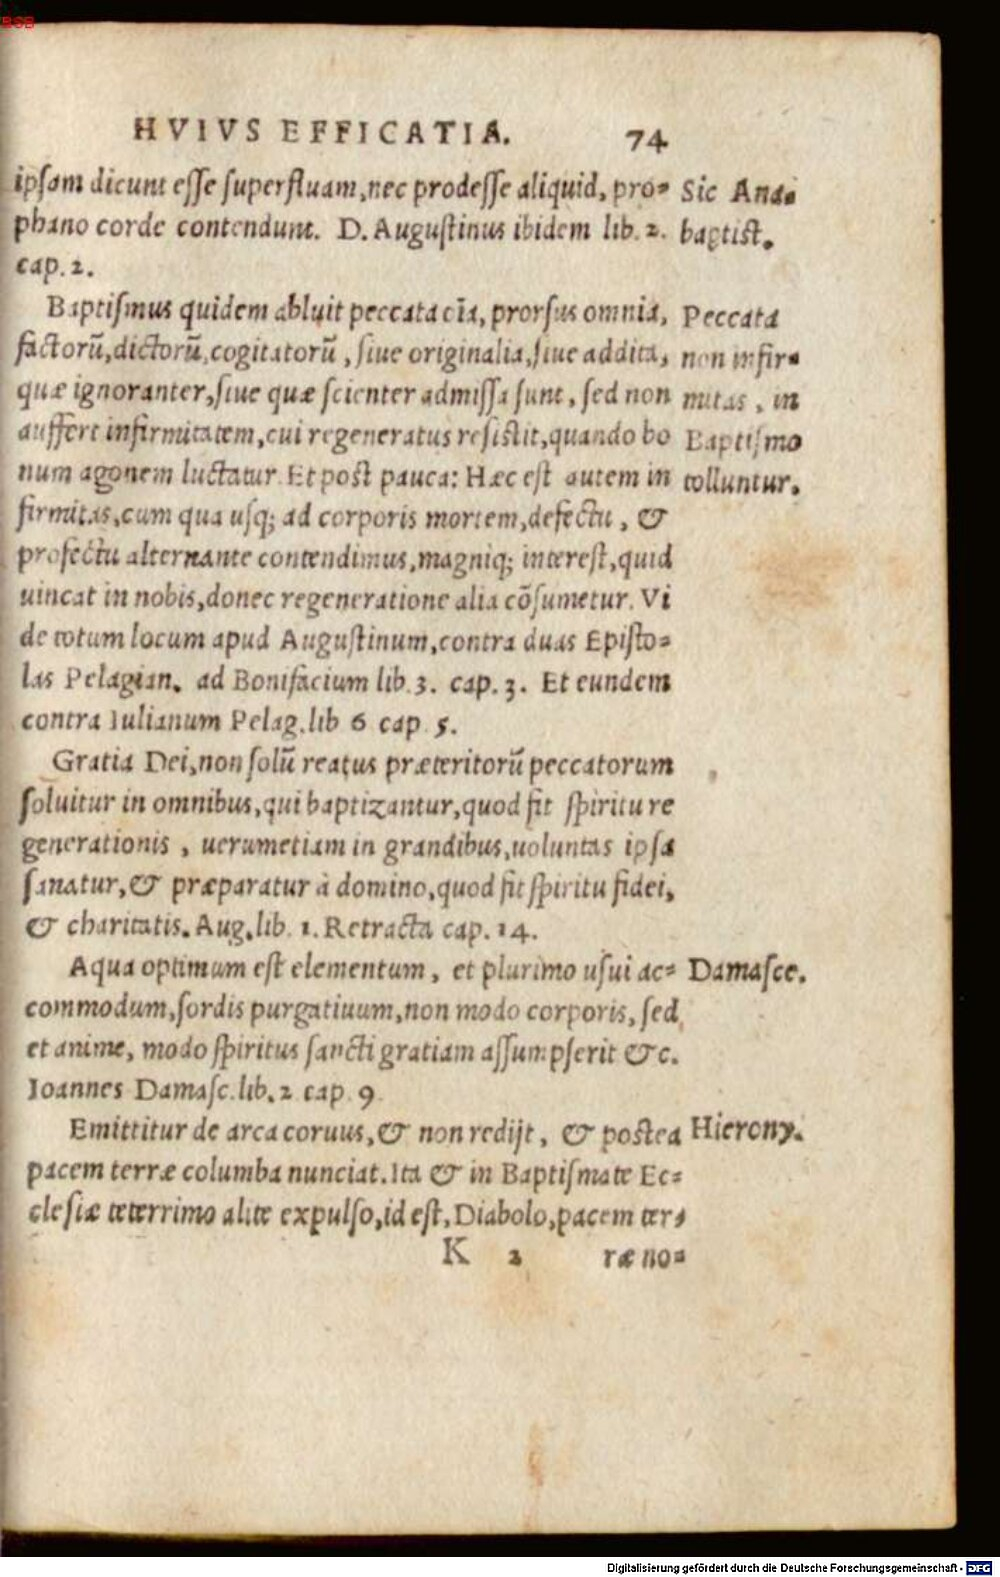 BSB
HVIVS EFFICATIA. 74
ipsam dicunt esse superfluam, nec prodesse aliquid, pro=
phano corde contendunt. D. Augustinus ibidem lib. 2.
cap. 2.
Sic Ana=
baptist.
Baptismus quidem abluit peccata oĩa, prorsus omnia,
factorũ, dictorũ, cogitatorũ, siue originalia, siue addita,
quæ ignoranter, siue quæ scienter admissa sunt, sed non
auffert infirmitatem, cui regeneratus resistit, quando bo
num agonem luctatur. Et post pauca: Hæc est autem in
firmitas, cum qua usq; ad corporis mortem, defectu, &
profectu alternante contendimus, magniq; interest, quid
uincat in nobis, donec regeneratione alia cõsumetur. Vi
de totum locum apud Augustinum, contra duas Episto=
las Pelagian. ad Bonifacium lib. 3. cap. 3. Et eundem
contra Iulianum Pelag. lib 6 cap 5.
Peccata
non infir=
mitas, in
Baptismo
tolluntur.
Gratia Dei, non solũ reatus præteritorũ peccatorum
soluitur in omnibus, qui baptizantur, quod fit spiritu re
generationis, uerumetiam in grandibus, uoluntas ipsa
sanatur, & præparatur à domino, quod fit spiritu fidei,
& charitatis. Aug. lib. 1. Retracta cap. 14.
Aqua optimum est elementum, et plurimo usui ac=
commodum, sordis purgatiuum, non modo corporis, sed
et anime, modo spiritus sancti gratiam assumpserit &c.
Ioannes Damasc. lib. 2 cap. 9.
Damasce.
Emittitur de arca coruus, & non redijt, & postea
pacem terræ columba nunciat. Ita & in Baptismate Ec=
clesiæ teterrimo alite expulso, id est, Diabolo, pacem ter=
Hierony.
K 2 ræ no=
Digitalisierung gefördert durch die Deutsche Forschungsgemeinschaft - DFG